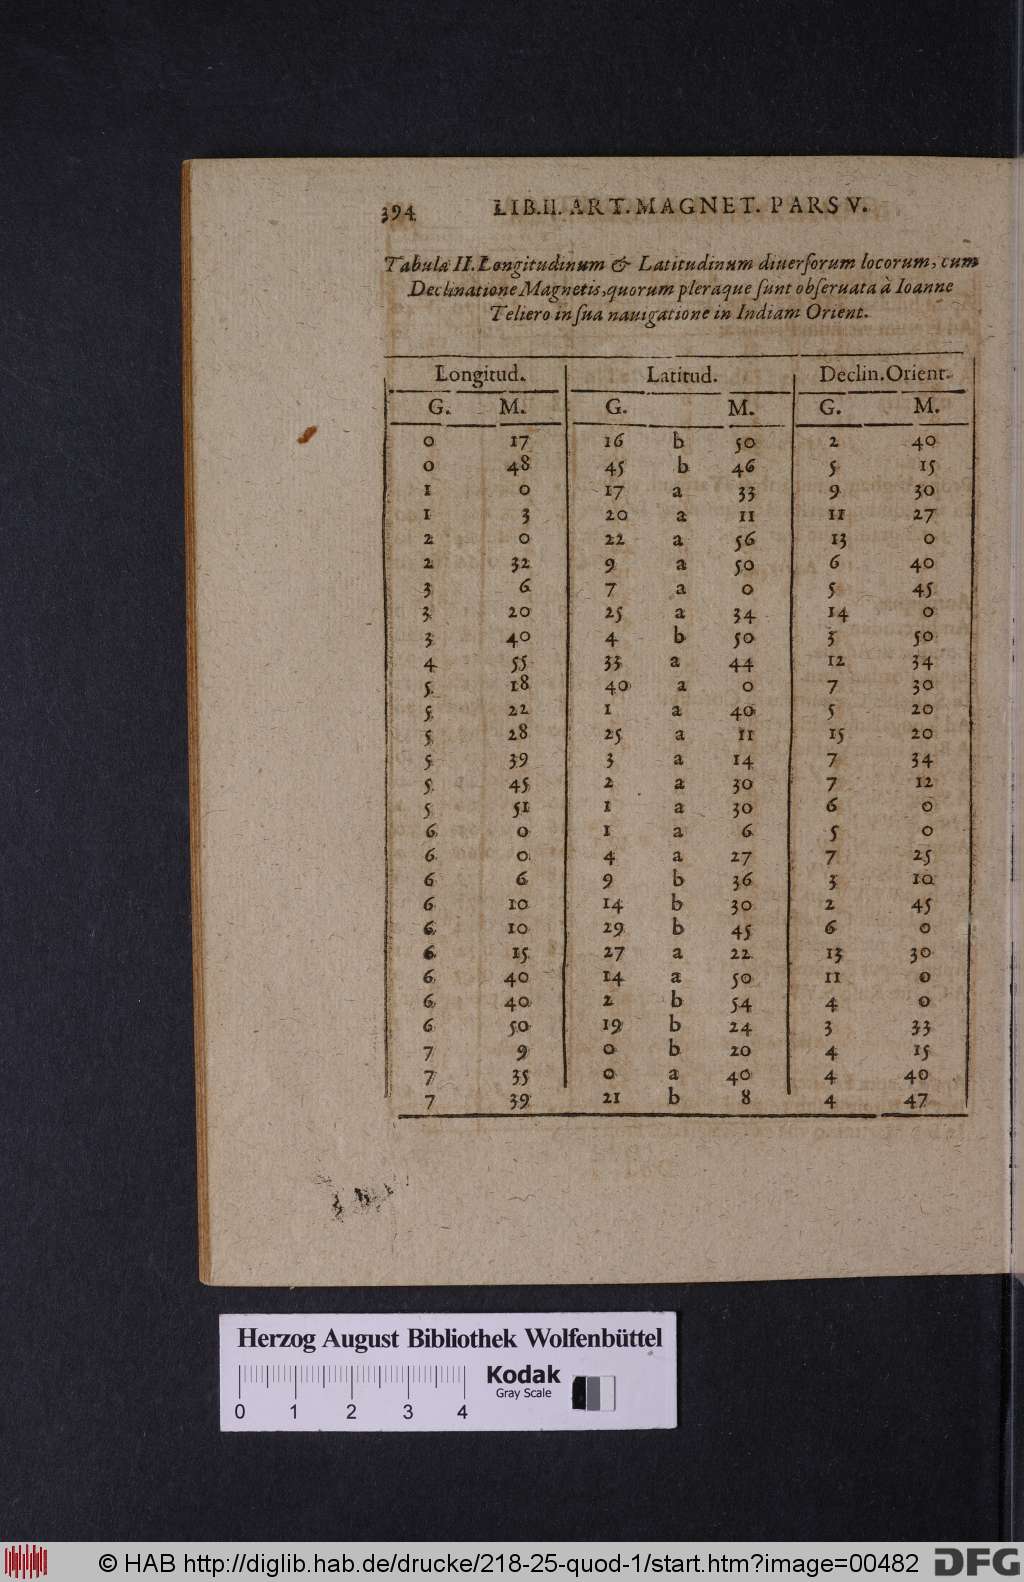 394 LIB.II. ART. MAGNET. PARS V.
Tabula II. Longitudinum & Latitudinum diuersorum locorum, cum
Declinatione Magnetis, quorum pleraque sunt obseruata à Ioanne
Teliero in sua nauigatione in Indiam Orient.
Longitud. Latitud. Declin. Orient.
G. M. G. M. G. M.
0 17 16 b 50 2 40
0 48 45 b 46 5 15
1 0 17 a 33 9 30
1 3 20 a 11 11 27
2 0 22 a 56 13 0
2 32 9 a 50 6 40
3 6 7 a 0 5 45
3 20 25 a 34 14 0
3 40 4 b 50 3 50
4 55 33 a 44 12 34
5 18 40 a 0 7 30
5 22 1 a 40 5 20
5 28 25 a 11 15 20
5 39 3 a 14 7 34
5 45 2 a 30 7 12
5 51 1 a 30 6 0
6 0 1 a 6 5 0
6 0 4 a 27 7 25
6 6 9 b 36 3 10
6 10 14 b 30 2 45
6 10 29 b 45 6 0
6 15 27 a 22 13 30
6 40 14 a 50 11 0
6 40 2 b 54 4 0
6 50 19 b 24 3 33
7 9 0 b 20 4 15
7 35 0 a 40 4 40
7 39 21 b 8 4 47
Herzog August Bibliothek Wolfenbüttel
Kodak
Gray Scale
0 1 2 3 4
© HAB http://diglib.hab.de/drucke/218-25-quod-1/start.htm?image=00482
DFG